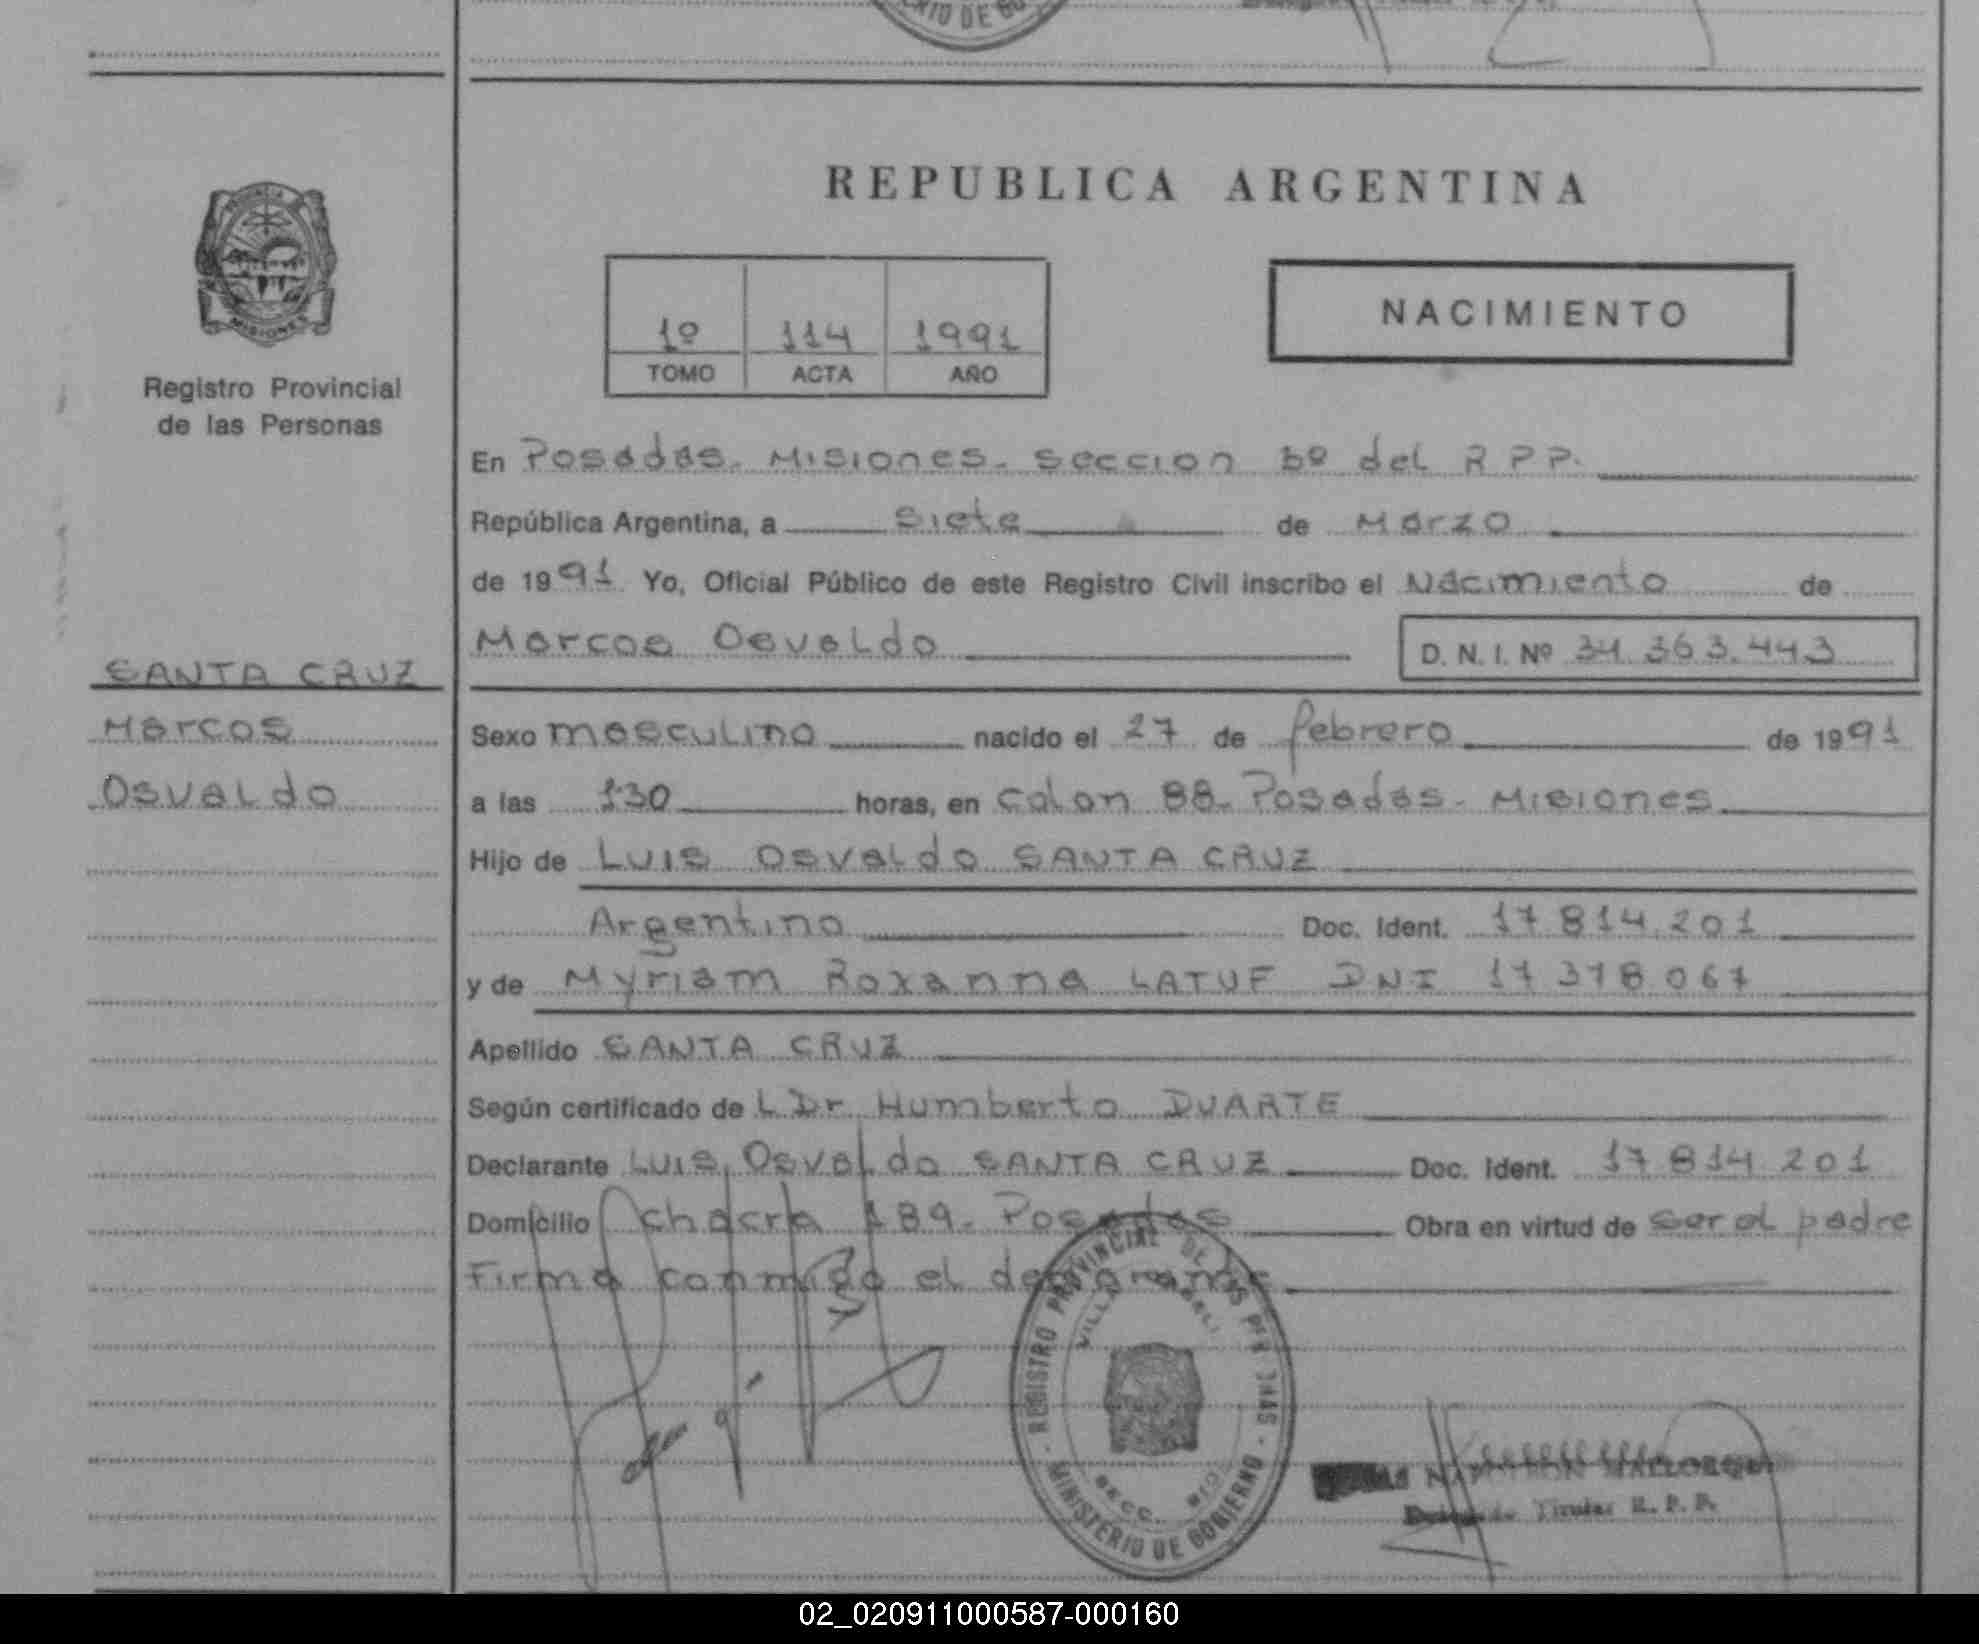 REPUBLICA ARGENTINA
PROVINCIA
MISIONES
Registro Provincial
de las Personas
1º 114 1991
TOMO ACTA AÑO
NACIMIENTO
En Posadas. Misiones. Seccion 3º del R P P.
República Argentina, a siete de Marzo
de 1991 Yo, Oficial Público de este Registro Civil inscribo el Nacimiento de
Marcos Osvaldo D. N. I. Nº 34.363.443
SANTA CRUZ
Marcos
Osvaldo
Sexo masculino nacido el 27 de febrero de 1991
a las 1:30 horas, en Colon 88. Posadas. Misiones
Hijo de Luis Osvaldo SANTA CRUZ
Argentino Doc. Ident. 17 814.201
y de Myriam Roxanna LATUF DNI 17 378 067
Apellido SANTA CRUZ
Según certificado de L Dr Humberto DUARTE
Declarante Luis Osvaldo SANTA CRUZ Doc. Ident. 17 814 201
Domicilio chacra 189. Posadas Obra en virtud de ser el padre
Firma conmigo el declarante
REGISTRO PROVINCIAL DE LAS PERSONAS
VILLA
SECC.
MINISTERIO DE GOBIERNO
Titular R. P. P.
02_020911000587-000160